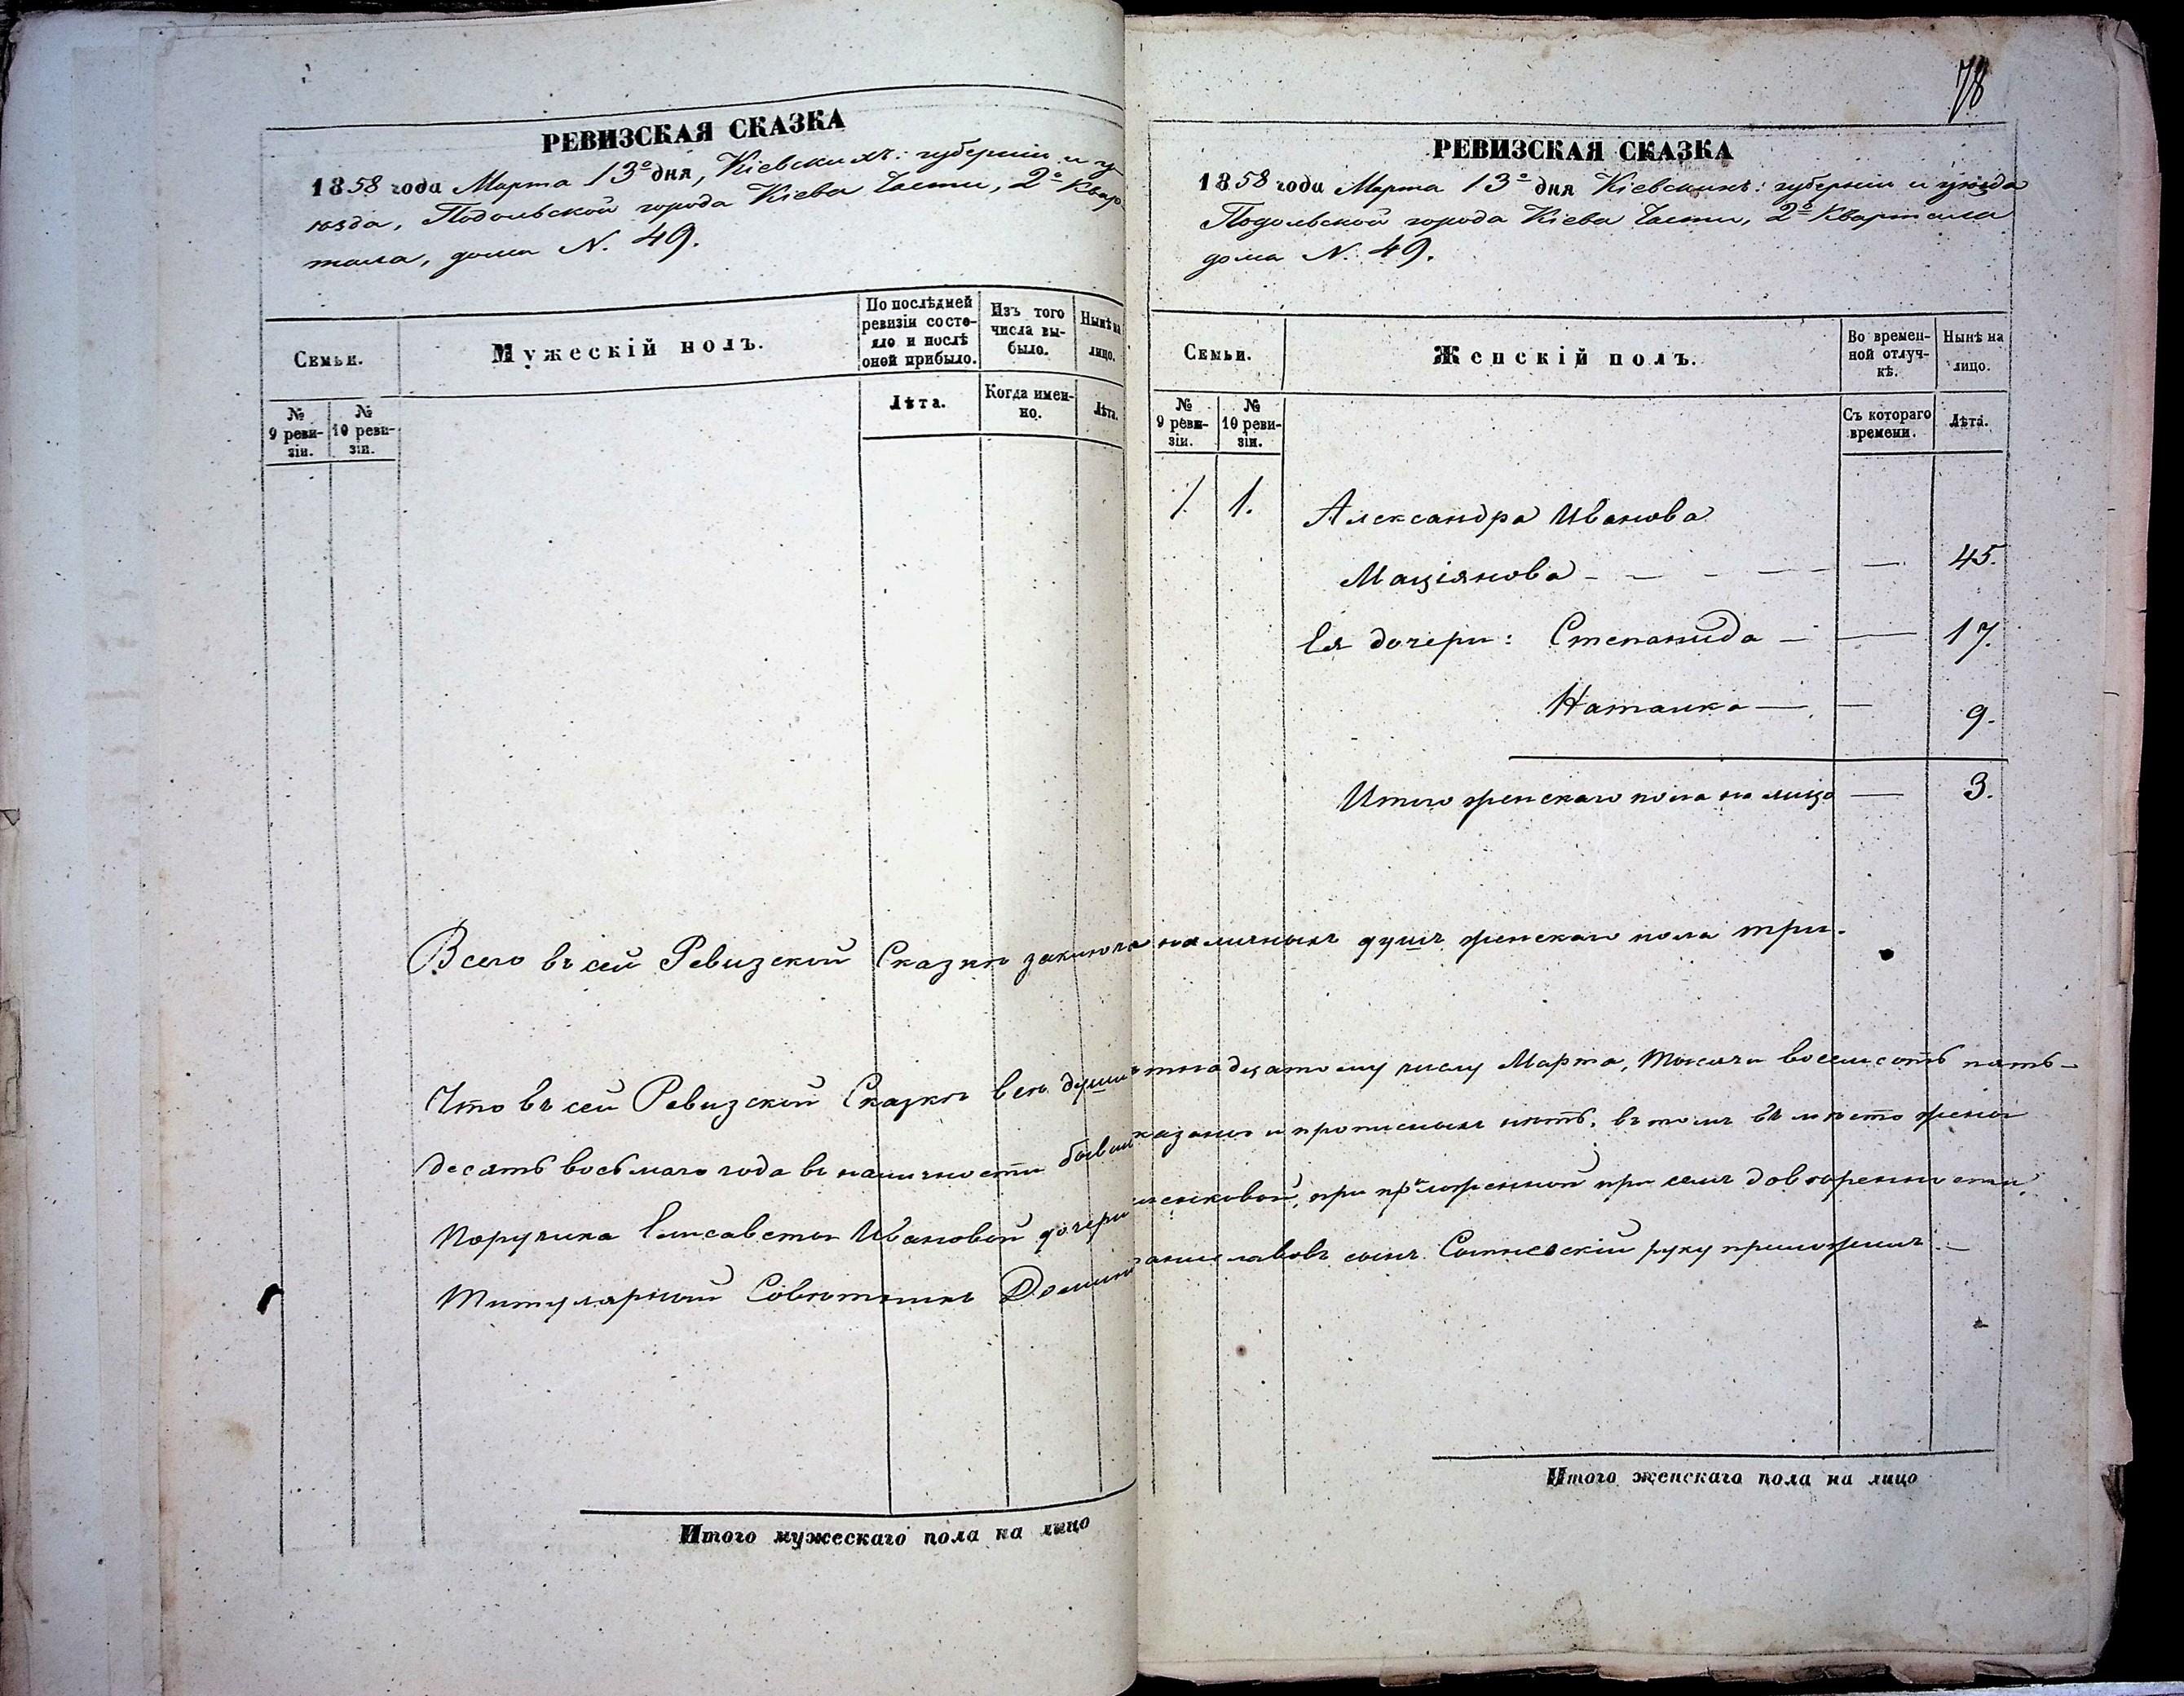 РЕВИЗСКАЯ СКАЗКА
1858 года Марта 13º дня, Кіевскихъ: губерніи и у
ѣзда, Подольской города Кіева Части, 2º Квар
тала, дома N. 49.
Семьи.
Мужескій полъ.
По послѣдней ревизіи состо-
яло и послѣ
оной прибыло.
Изъ того
числа вы-
было.
Нынѣ на
лицо.
№
9 реви-
зіи.
№
10 реви-
зіи.
Лѣта.
Когда имен-
но.
Лѣта.
Итого мужескаго пола на лицо
78
РЕВИЗСКАЯ СКАЗКА
1858 года Марта 13º дня Кіевскихъ: губерніи и уѣзда
Подольской города Кіева Части, 2º Квартала
дома N. 49.
Семьи.
Женскій полъ.
Во времен-
ной отлуч-
кѣ.
Нынѣ на
лицо.
№
9 реви-
зіи.
№
10 реви-
зіи.
Съ котораго
времени.
Лѣта.
1. 1. Александра Иванова
Маціянова - - - - - — 45.
Ея дочери: Степанида — — 17.
Наталка — — 9.
Итого женскаго пола на лицо — 3.
Всего въ сей Ревизской Сказкѣ заключа наличныхъ душъ женскаго пола три.
Что въ сей Ревизской Сказкѣ всѣ души тнадцатому числу Марта, тысяча восемсотъ пять-
десятъ восьмаго года въ наличности бывш казаны и прописныхъ нѣтъ, въ томъ вмѣсто жены
Поручика Елисаветы Ивановой дочери при приложенной при семъ довѣренности,
Титулярный Совѣтникъ сынъ руку приложилъ. —
Итого женскаго пола на лицо